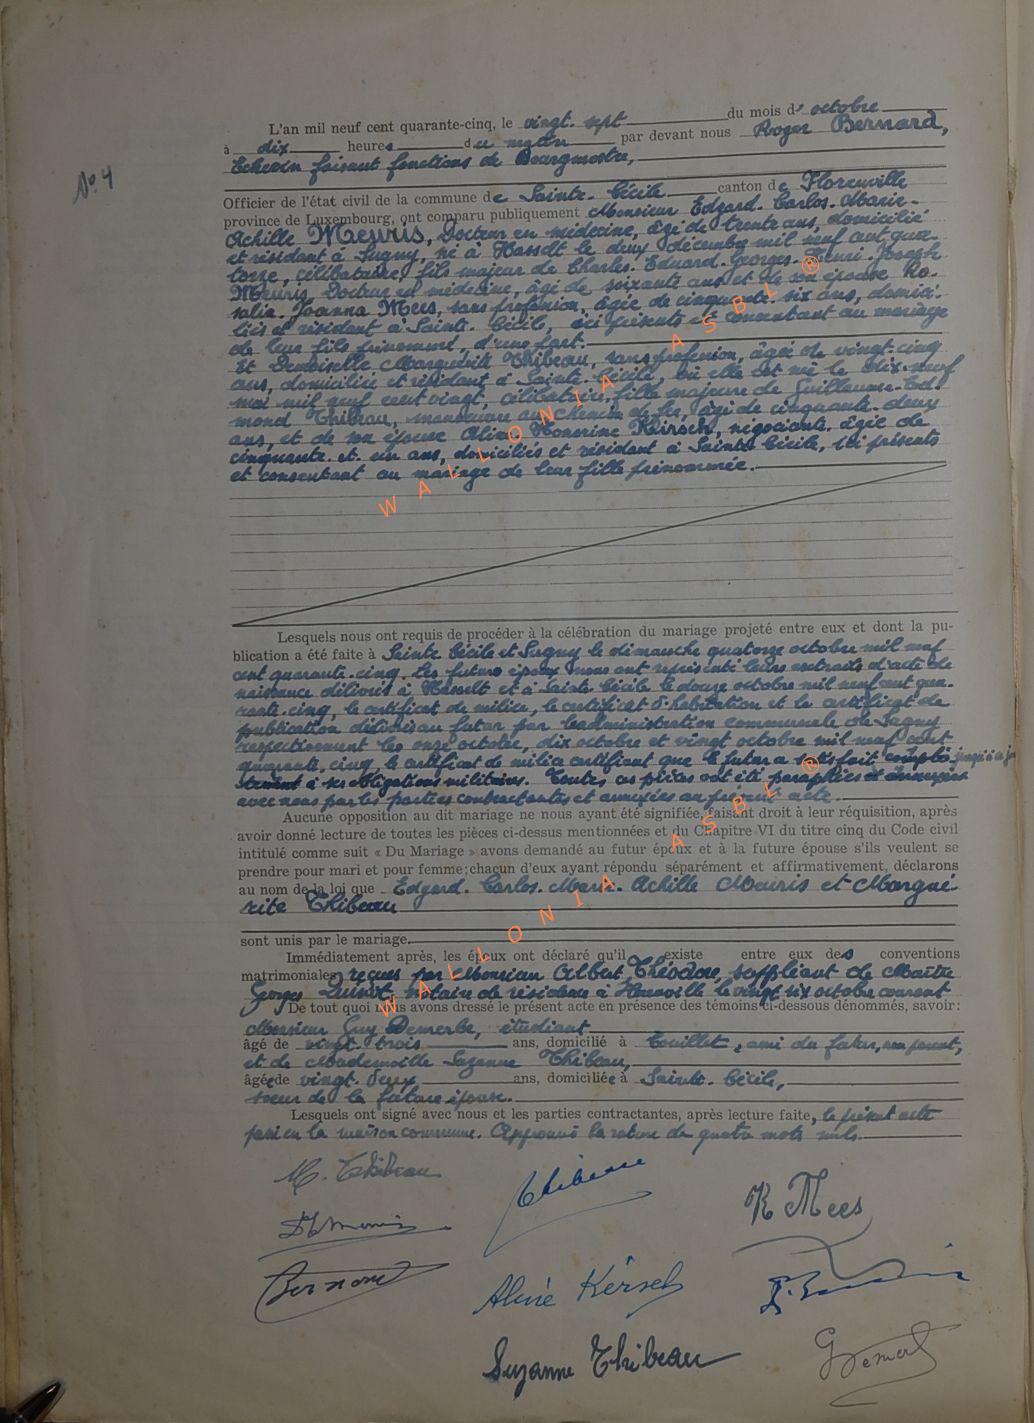 N° 4
L'an mil neuf cent quarante-cinq, le vingt-sept du mois d' octobre
à dix heures du matin par devant nous Roger Bernard,
Echevin faisant fonctions de Bourgmestre,
Officier de l'état civil de la commune de Sainte-Cécile canton de Florenville
province de Luxembourg, ont comparu publiquement Monsieur Edgard-Carlos-Marie-
Achille Meuris, Docteur en médecine, âgé de trente ans, domicilié
et résidant à Sugny, né à Hasselt le deux décembre mil neuf cent qua-
torze, célibataire, fils majeur de Charles-Eduard-Georges-Henri-Joseph
Meuris, Docteur en médecine, âgé de soixante ans et de son épouse Ro-
salia-Joanna Mees, sans profession, âgée de cinquante-six ans, domici-
liés et résidant à Sainte-Cécile, ici présents et consentant au mariage
de leur fils prénommé, d'une part.
Et Demoiselle Marguérite Thibeau, sans profession, âgée de vingt-cinq
ans, domiciliée et résidant à Sainte-Cécile, où elle est née le dix-neuf
mai mil neuf cent vingt, célibataire, fille majeure de Guillaume-Ed-
mond Thibeau, manœuvre au chemin de fer, âgé de cinquante-deux
ans, et de son épouse Aline Honorine negociante, âgée de
cinquante et un ans, domiciliés et résidant à Sainte-Cécile, ici présents
et consentant au mariage de leur fille prénommée.
Lesquels nous ont requis de procéder à la célébration du mariage projeté entre eux et dont la pu-
blication a été faite à Sainte Cécile et Sugny le dimanche quatorze octobre mil neuf
cent quarante-cinq. Les futurs époux nous ont représenté leurs extraits d'acte de
naissance délivrés à Hasselt et à Sainte-Cécile le douze octobre mil neuf cent qua-
rante-cinq, le certificat de milice, le certificat d'habitation et le certificat de
publication délivrés au futur par l'administration communale de Sugny
respectivement les onze octobre, dix octobre et vingt octobre mil neuf cent
quarante-cinq, le certificat de milice certifiant que le futur a satisfait complè- jusqu'à ce jour
tement à ses obligations militaires. Toutes ces pièces ont été paraphées et annexées
avec nous par les parties contractantes et annexées au présent acte.
Aucune opposition au dit mariage ne nous ayant été signifiée, faisant droit à leur réquisition, après
avoir donné lecture de toutes les pièces ci-dessus mentionnées et du Chapitre VI du titre cinq du Code civil
intitulé comme suit « Du Mariage » avons demandé au futur époux et à la future épouse s'ils veulent se
prendre pour mari et pour femme; chacun d'eux ayant répondu séparément et affirmativement, déclarons
au nom de la loi que Edgard-Carlos-Marie-Achille Meuris et Margué-
rite Thibeau
sont unis par le mariage.
Immédiatement après, les époux ont déclaré qu'il existe entre eux des conventions
matrimoniales reçues par Monsieur Albert Théodore, suppléant de Maître
Georges notaire de résidence à le vingt six octobre courant
De tout quoi nous avons dressé le présent acte en présence des témoins ci-dessous dénommés, savoir:
Monsieur Guy étudiant
âgé de vingt-trois ans, domicilié à Couillet, ami du futur, non parent,
et de Mademoiselle Suzanne Thibeau,
âgée de vingt-deux ans, domiciliée à Sainte-Cécile,
sœur de la future épouse.
Lesquels ont signé avec nous et les parties contractantes, après lecture faite, le présent acte
passé en la maison commune. Approuvé la rature de quatre mots nuls.
M. Thibeau
Thibeau
R Mees
Bernard
Aline Kersch
Suzanne Thibeau
WALLONIA ASBL ®
WALLONIA ASBL ®